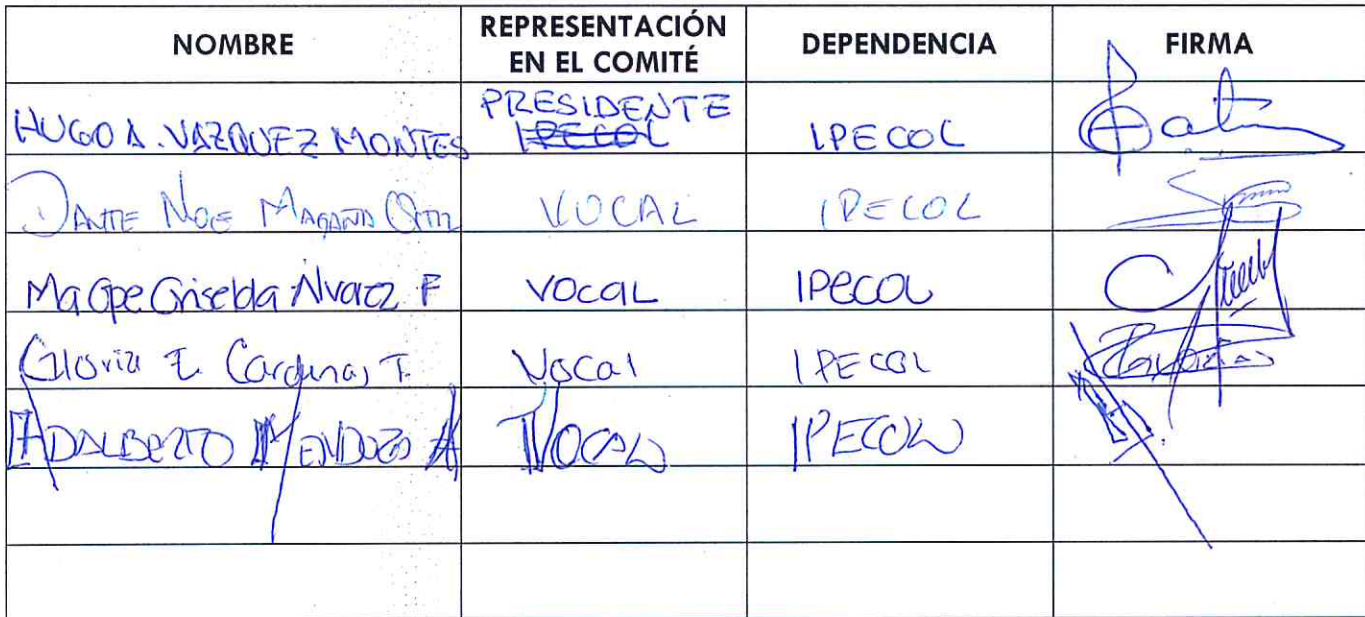 NOMBRE REPRESENTACIÓN EN EL COMITÉ DEPENDENCIA FIRMA
HUGO A. VAZQUEZ MONTES PRESIDENTE IPECOL IPECOL
DANTE NOE MAGAÑA ORTIZ VOCAL IPECOL
Ma Gpe Griselda Alvarez F VOCAL IPECOL
Gloria E. Cardenas T. Vocal IPECOL
ADALBERTO MENDOZA A VOCAL IPECOL